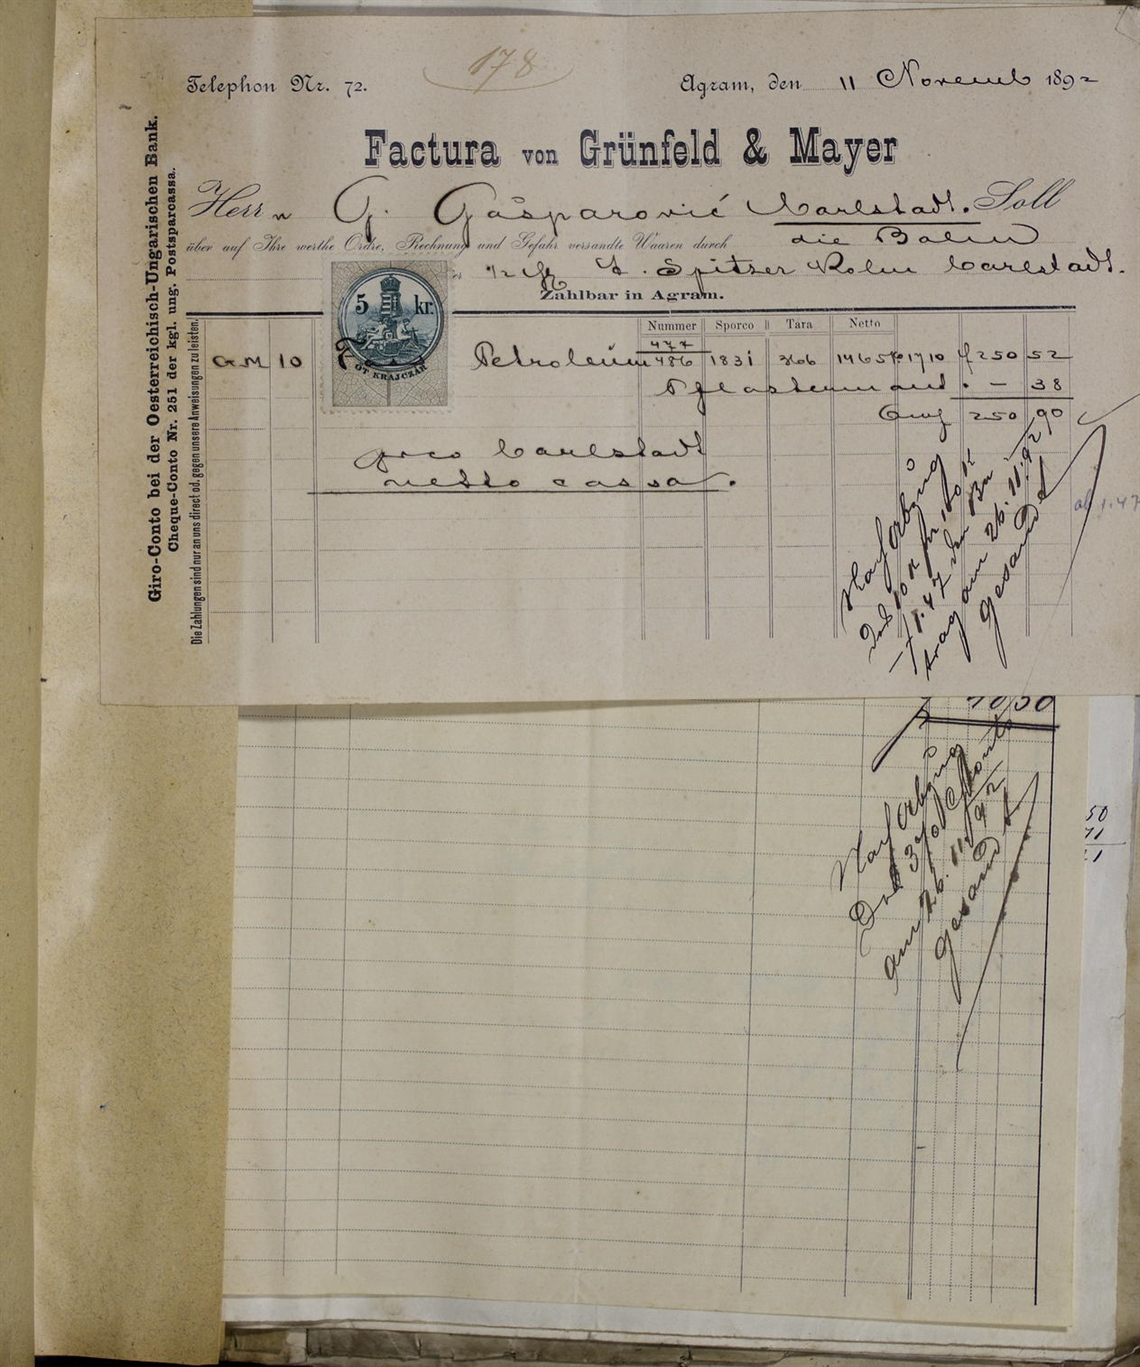 178
Telephon Nr. 72.
Agram, den 11 Novemb 1892
Factura von Grünfeld & Mayer
Herrn G. Gašparović Carlstadt. Soll
über auf Ihre werthe Ordre, Rechnung und Gefahr versandte Waaren durch die Bahn
Spitzer Kohn Carlstadt.
Zahlbar in Agram.
Nummer Sporco Tara Netto
5 kr.
ÖT KRAJCZÁR
477
G.M. 10 Petroleum 486 1831 366 1465 1710 f 250 52
. — 38
250 90
Carlstadt
netto cassa.
Giro-Conto bei der Oesterreichisch-Ungarischen Bank.
Cheque-Conto Nr. 251 der kgl. ung. Postsparcassa.
Die Zahlungen sind nur an uns direct od. gegen unsere Anweisungen zu leisten.
Nach Abzug
10 K für 100 K
f 1.47 den Be
trag am 26.11.92
gesandt
ab 1.47
50
Nach Abzug
3% Sconto
am 26.11.92
gesandt
50